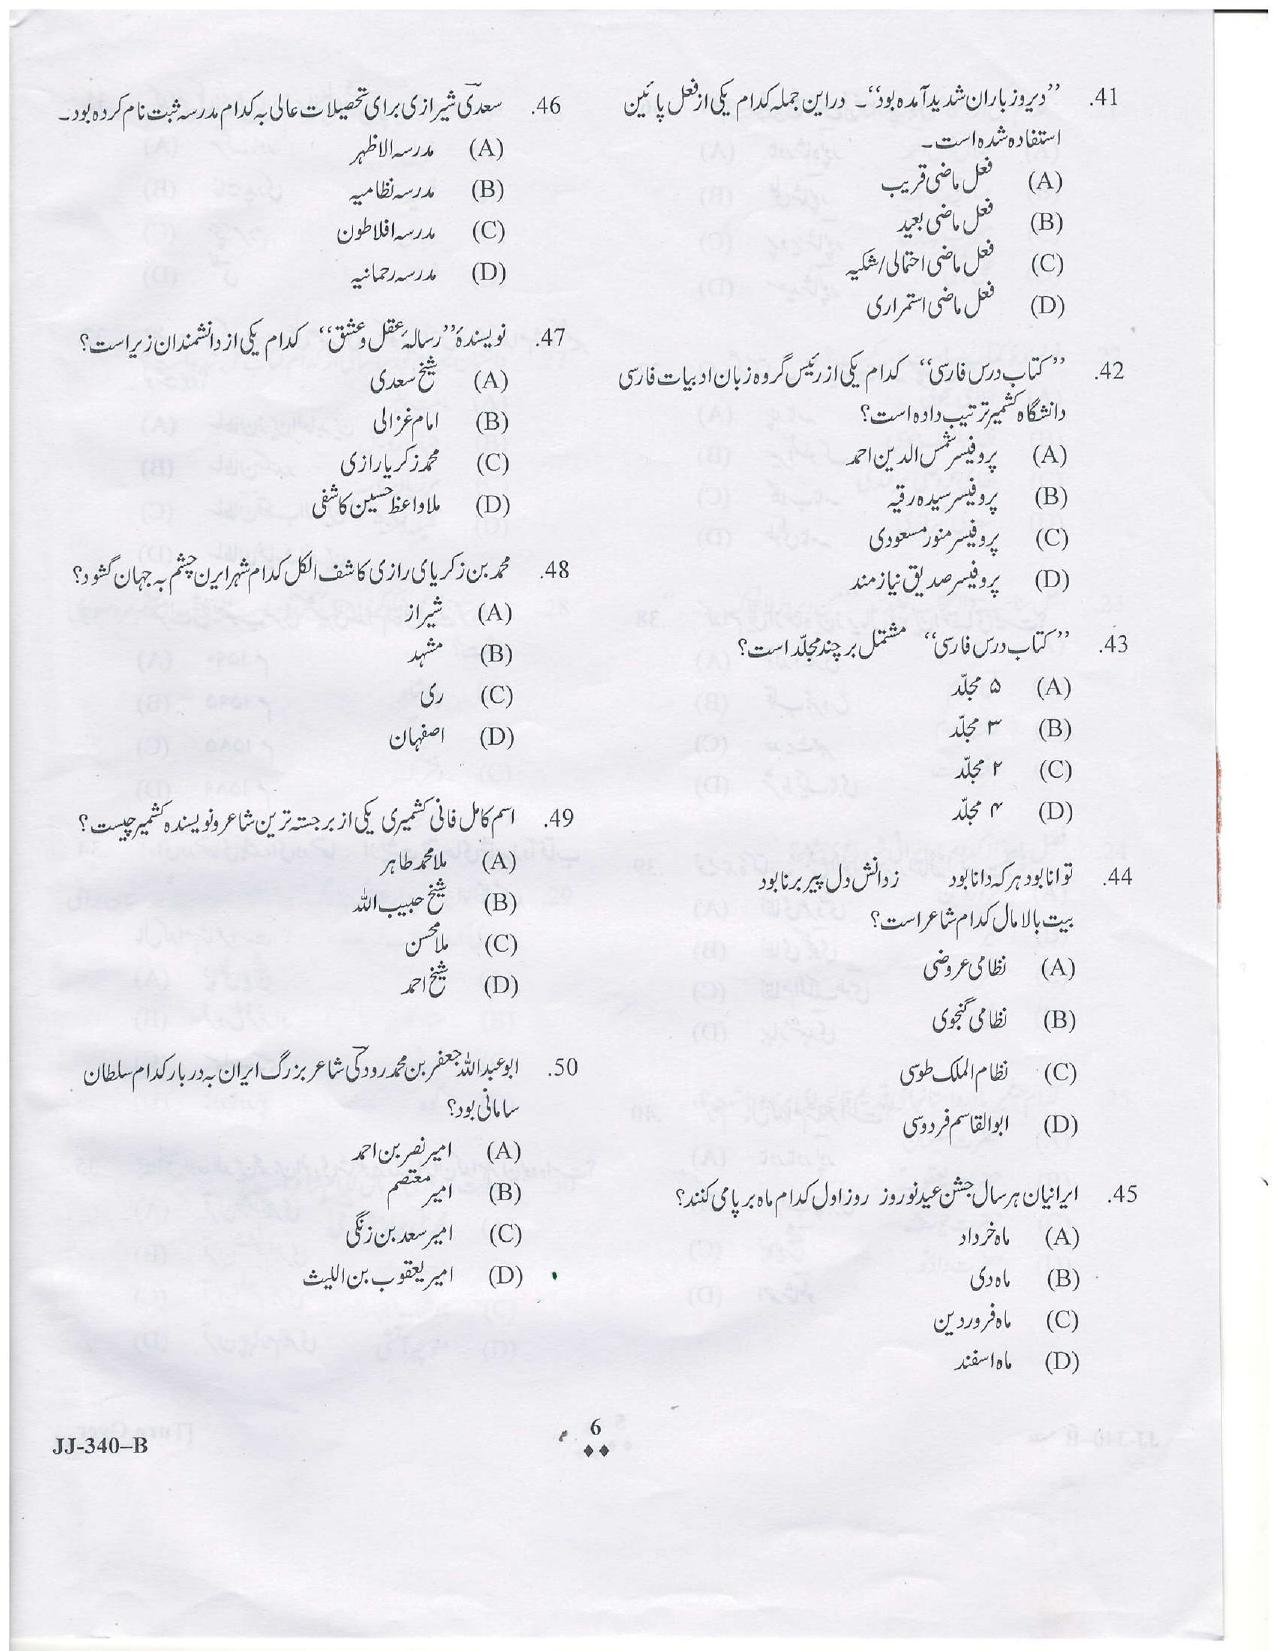 41. ”دیروز باران شدید آمده بود“۔ در این جملہ کدام یکی از فعل پائین
استفادہ شدہ است۔
(A) فعل ماضی قریب
(B) فعل ماضی بعید
(C) فعل ماضی احتمالی/شکیہ
(D) فعل ماضی استمراری
42. ”کتاب درس فارسی“ کدام یکی از رئیس گروہ زبان ادبیات فارسی
دانشگاہ کشمیر ترتیب دادہ است؟
(A) پروفیسر شمس الدین احمد
(B) پروفیسر سیدہ رقیہ
(C) پروفیسر منور مسعودی
(D) پروفیسر صدیق نیازمند
43. ”کتاب درس فارسی“ مشتمل بر چند مجلّد است؟
(A) ۵ مجلّد
(B) ۳ مجلّد
(C) ۲ مجلّد
(D) ۴ مجلّد
44. توانا بود ہر کہ دانا بود زدانش دل پیر برنا بود
بیت بالا مال کدام شاعر است؟
(A) نظامی عروضی
(B) نظامی گنجوی
(C) نظام الملک طوسی
(D) ابوالقاسم فردوسی
45. ایرانیان ہر سال جشن عید نوروز روز اول کدام ماہ بر پا می کنند؟
(A) ماہ خرداد
(B) ماہ دی
(C) ماہ فروردین
(D) ماہ اسفند
46. سعدیؔ شیرازی برای تحصیلات عالی بہ کدام مدرسہ ثبت نام کردہ بود۔
(A) مدرسہ الاظہر
(B) مدرسہ نظامیہ
(C) مدرسہ افلاطون
(D) مدرسہ رحمانیہ
47. نویسندۂ ”رسالۂ عقل و عشق“ کدام یکی از دانشمندان زیر است؟
(A) شیخ سعدی
(B) امام غزالی
(C) محمد زکریا رازی
(D) ملا واعظ حسین کاشفی
48. محمد بن زکریای رازی کاشف الکل کدام شہر ایرن چشم بہ جہان گشود؟
(A) شیراز
(B) مشہد
(C) ری
(D) اصفہان
49. اسم کامل فانی کشمیری یکی از برجستہ ترین شاعر و نویسندہ کشمیر چیست؟
(A) ملا محمد طاہر
(B) شیخ حبیب اللہ
(C) ملا محسن
(D) شیخ احمد
50. ابو عبداللہ جعفر بن محمد رودکیؔ شاعر بزرگ ایران بہ دربار کدام سلطان
سامانی بود؟
(A) امیر نصر بن احمد
(B) امیر معتصم
(C) امیر سعد بن زنگی
(D) امیر یعقوب بن اللیث
6
JJ-340–B